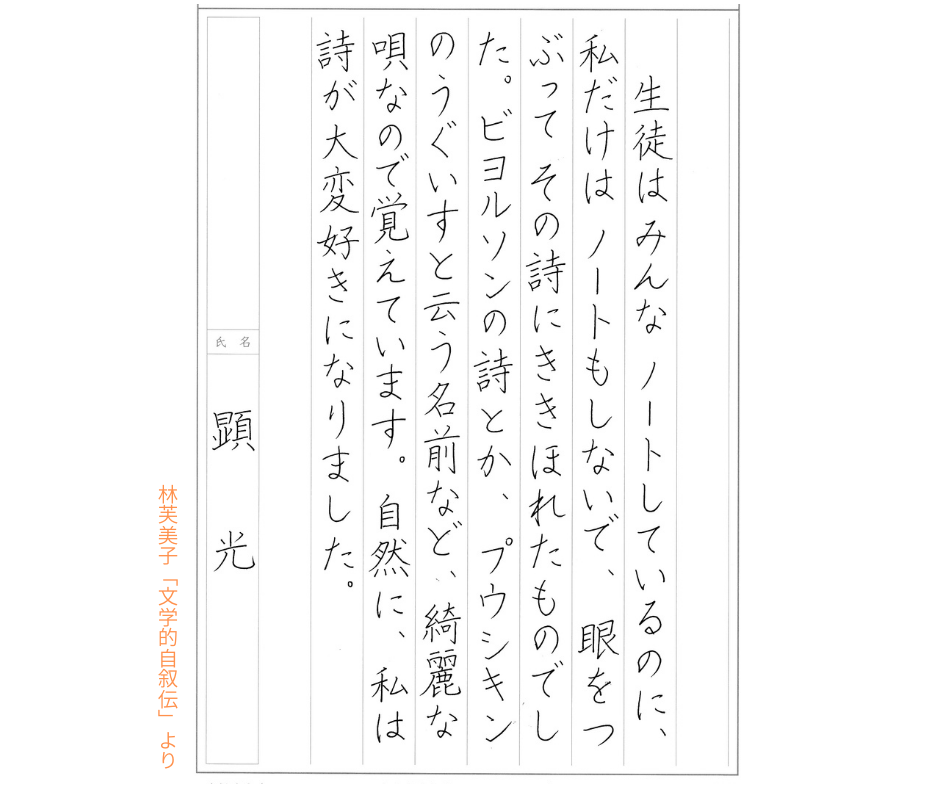 生徒はみんなノートしているのに、
私だけは ノートもしないで、 眼をつ
ぶって その詩にききほれたものでし
た。ビヨルソンの詩とか、プウシキン
のうぐいすと云う名前など、綺麗な
唄なので覚えています。自然に、私は
詩が大変好きになりました。
氏名
顕光
林芙美子「文学的自叙伝」より